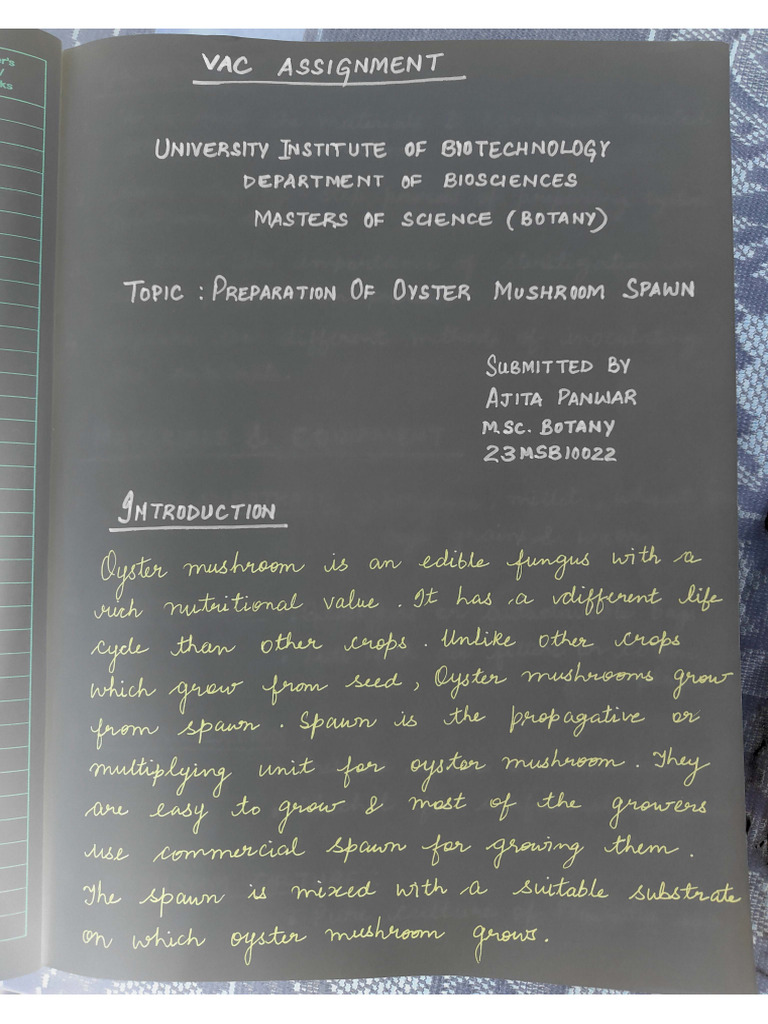 er's
/
ks
VAC ASSIGNMENT
UNIVERSITY INSTITUTE OF BIOTECHNOLOGY
DEPARTMENT OF BIOSCIENCES
MASTERS OF SCIENCE (BOTANY)
TOPIC : PREPARATION OF OYSTER MUSHROOM SPAWN
SUBMITTED BY
AJITA PANWAR
M.SC. BOTANY
23MSB10022
INTRODUCTION
Oyster mushroom is an edible fungus with a
rich nutritional value. It has a different life
cycle than other crops. Unlike other crops
which grow from seed, Oyster mushrooms grow
from spawn. Spawn is the propagative or
multiplying unit for oyster mushroom. They
are easy to grow & most of the growers
use commercial spawn for growing them.
The spawn is mixed with a suitable substrate
on which oyster mushroom grows.